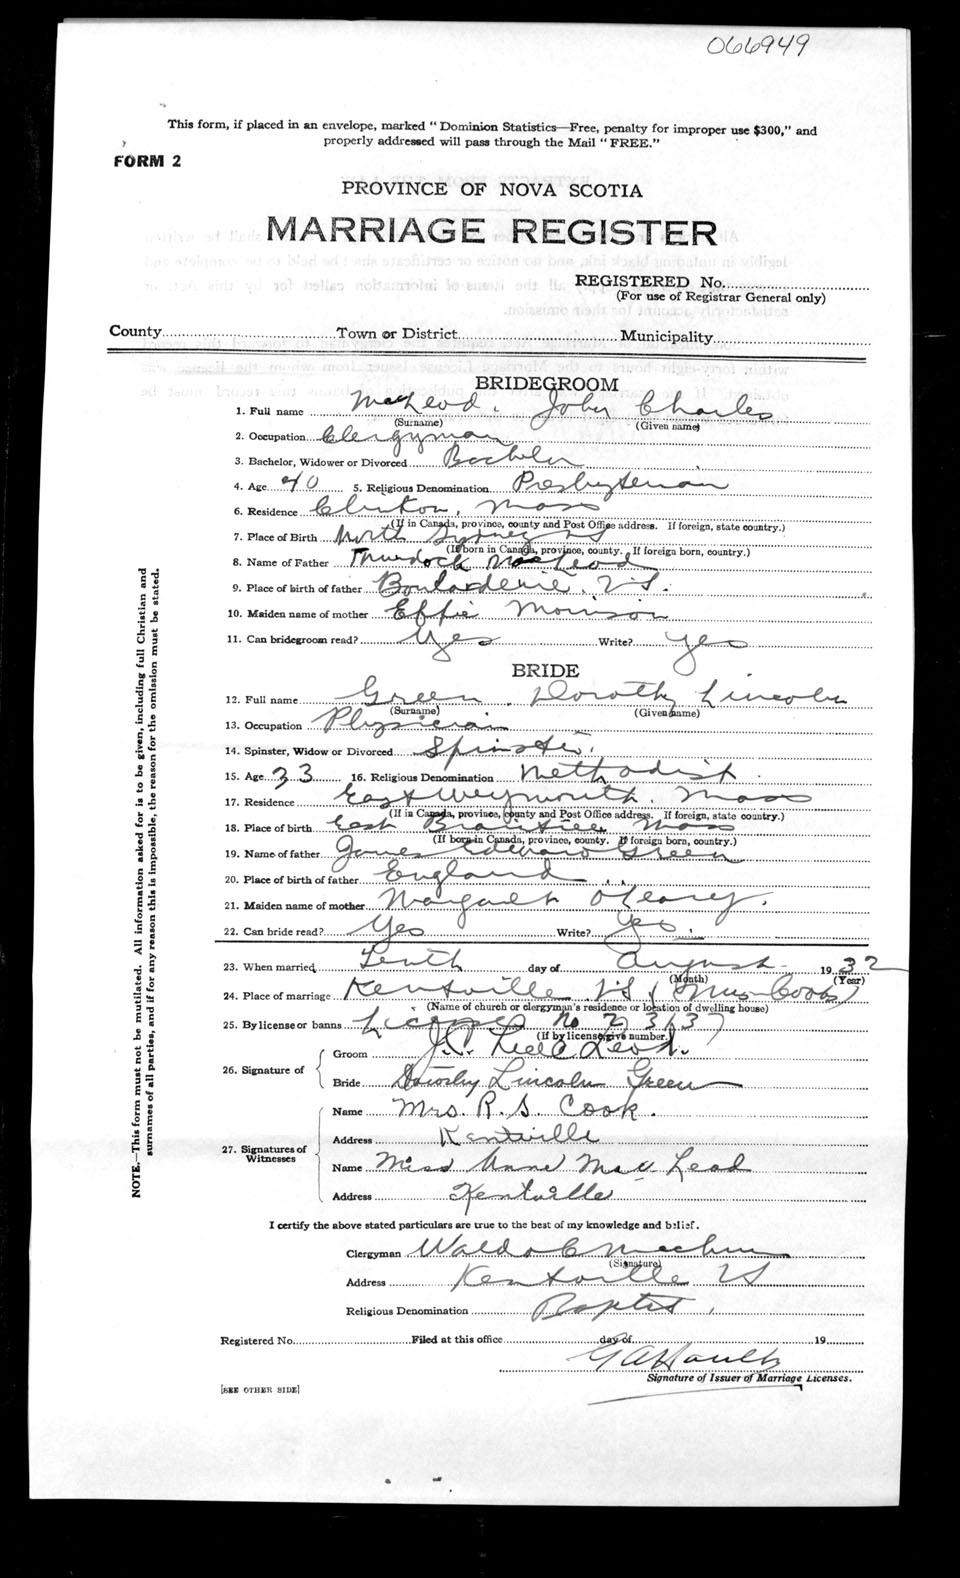 066949
This form, if placed in an envelope, marked "Dominion Statistics—Free, penalty for improper use $300," and
properly addressed will pass through the Mail "FREE."
FORM 2
PROVINCE OF NOVA SCOTIA
MARRIAGE REGISTER
REGISTERED No.
(For use of Registrar General only)
County Town or District Municipality
BRIDEGROOM
1. Full name MacLeod, John Charles
(Surname) (Given name)
2. Occupation Clergyman
3. Bachelor, Widower or Divorced Bachelor
4. Age 40 5. Religious Denomination Presbyterian
6. Residence Clinton, Mass
(If in Canada, province, county and Post Office address. If foreign, state country.)
7. Place of Birth North Sydney NS
(If born in Canada, province, county. If foreign born, country.)
8. Name of Father Murdock MacLeod
9. Place of birth of father Boularderie, N.S.
10. Maiden name of mother Effie Morrison
11. Can bridegroom read? Yes Write? Yes
BRIDE
12. Full name Green, Dorothy Lincoln
(Surname) (Given name)
13. Occupation Physician
14. Spinster, Widow or Divorced Spinster.
15. Age 33 16. Religious Denomination Methodist
17. Residence East Weymouth, Mass
(If in Canada, province, county and Post Office address. If foreign, state country.)
18. Place of birth East Braintree Mass
(If born in Canada, province, county. If foreign born, country.)
19. Name of father James Edward Green
20. Place of birth of father England
21. Maiden name of mother Margaret O'Leary.
22. Can bride read? Yes Write? Yes.
23. When married Tenth day of August 1932
(Month) (Year)
24. Place of marriage Kentville NS (Mrs Cooks)
(Name of church or clergyman's residence or location of dwelling house)
25. By license or banns License No
(If by license, give number.)
26. Signature of
Groom J.C. MacLeod.
Bride Dorothy Lincoln Green
27. Signatures of Witnesses
Name Mrs. R. S. Cook.
Address Kentville
Name Miss Anne MacLeod
Address Kentville
I certify the above stated particulars are true to the best of my knowledge and belief.
Clergyman Waldo C Machum
(Signature)
Address Kentville NS
Religious Denomination Baptist.
Registered No. Filed at this office day of 19
Signature of Issuer of Marriage Licenses.
[SEE OTHER SIDE]
NOTE.—This form must not be mutilated. All information asked for is to be given, including full Christian and
surnames of all parties, and if for any reason this is impossible, the reason for the omission must be stated.